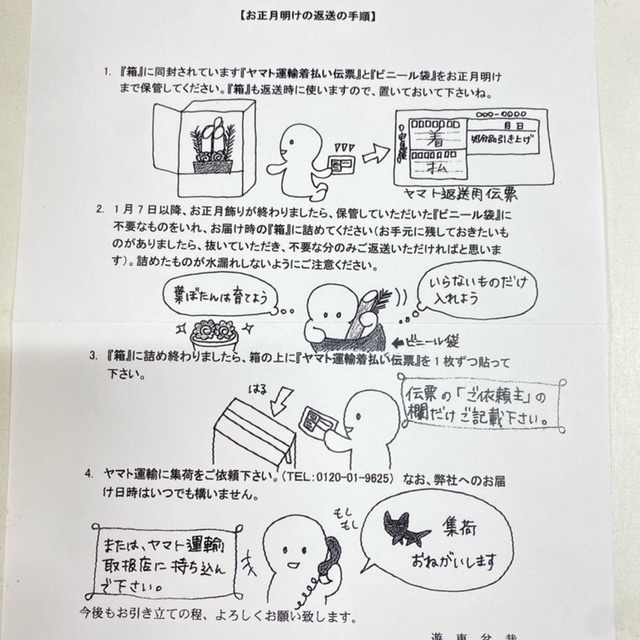 【お正月明けの返送の手順】
1. 『箱』に同封されています『ヤマト運輸着払い伝票』と『ビニール袋』をお正月明け
まで保管してください。『箱』も返送時に使いますので、置いておいて下さいね。
月 日
着
払
処分品引き上げ
ヤマト返送用伝票
2. 1月7日以降、お正月飾りが終わりましたら、保管していただいた『ビニール袋』に
不要なものをいれ、お届け時の『箱』に詰めてください(お手元に残しておきたいも
のがありましたら、抜いていただき、不要な分のみご返送いただければと思いま
す)。詰めたものが水漏れしないようにご注意ください。
葉ぼたんは育てよう
いらないものだけ
入れよう
←ビニール袋
3. 『箱』に詰め終わりましたら、箱の上に『ヤマト運輸着払い伝票』を1枚ずつ貼って
下さい。
はる
伝票の「ご依頼主」の
欄だけご記載下さい。
4. ヤマト運輸に集荷をご依頼下さい。(TEL:0120-01-9625) なお、弊社へのお届
け日時はいつでも構いません。
または、ヤマト運輸
取扱店に持ち込ん
で下さい。
もし
もし
集荷
おねがいします
今後もお引き立ての程、よろしくお願い致します。